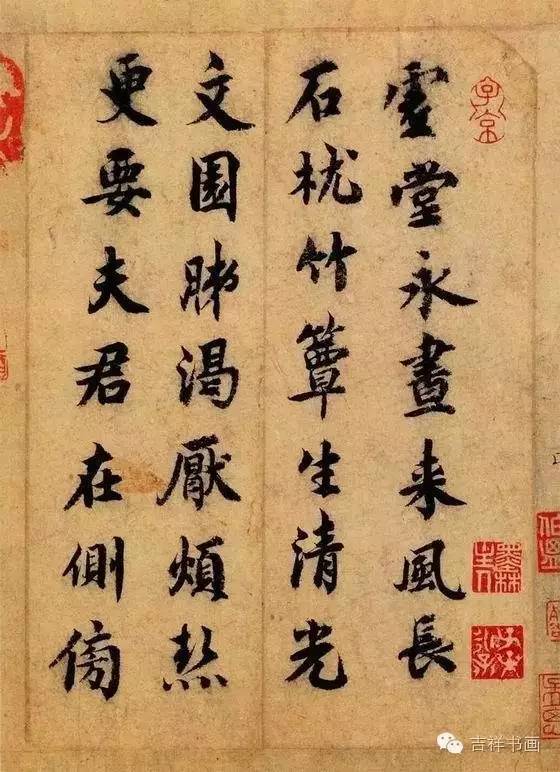 虚堂永昼来風長
石枕竹簟生清光
文園肺渴厭煩㷱
更要夫君在側傍
子京
墨林
吉祥书画